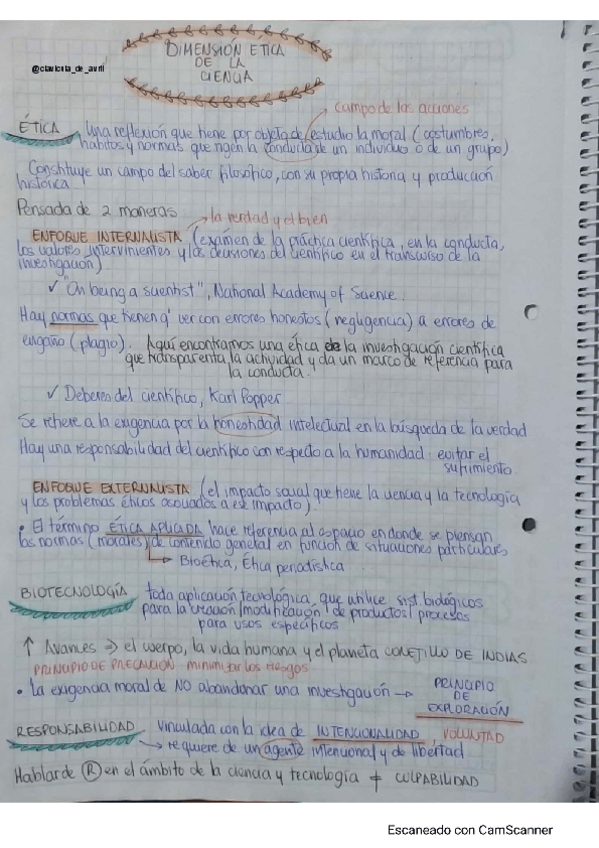 @clavicula_de_avril
DIMENSIÓN ETICA
DE LA
CIENCIA
campo de las acciones
ÉTICA Una reflexión que tiene por objeto de estudio la moral (costumbres,
hábitos y normas que rigen la conducta de un individuo o de un grupo)
Constituye un campo del saber filosófico, con su propia historia y producción
histórica
Pensada de 2 maneras
la verdad y el bien
ENFOQUE INTERNALISTA (exámen de la práctica científica, en la conducta,
los valores intervinientes y las decisiones del científico en el transcurso de la
investigación)
✓ "On being a scientist", National Academy of Science.
Hay normas que tienen q' ver con errores honestos (negligencia) a errores de
engaño (plagio). Aquí encontramos una ética de la investigación científica
que transparenta la actividad y da un marco de referencia para
la conducta.
✓ Deberes del científico, Karl Popper
Se refiere a la exigencia por la honestidad intelectual en la búsqueda de la verdad
Hay una responsabilidad del científico con respecto a la humanidad: evitar el
sufrimiento.
ENFOQUE EXTERNALISTA (el impacto social que tiene la ciencia y la tecnología
y los problemas éticos asociados a ese impacto)
• El término ÉTICA APLICADA hace referencia al espacio en donde se piensan
las normas (morales) de contenido general en función de situaciones particulares
Bioética, Ética periodística
BIOTECNOLOGÍA toda aplicación tecnológica, que utilice sist. biológicos
para la creación/modificación de productos/procesos
para usos específicos
↑ Avances ⇒ el cuerpo, la vida humana y el planeta CONEJILLO DE INDIAS
PRINCIPIO DE PRECAUCIÓN minimizar los riesgos
• La exigencia moral de NO abandonar una investigación → PRINCIPIO
DE
EXPLORACIÓN
RESPONSABILIDAD vinculada con la idea de INTENCIONALIDAD, VOLUNTAD
→ requiere de un agente intencional y de libertad
Hablar de Ⓡ en el ámbito de la ciencia y tecnología ≠ CULPABILIDAD
Escaneado con CamScanner